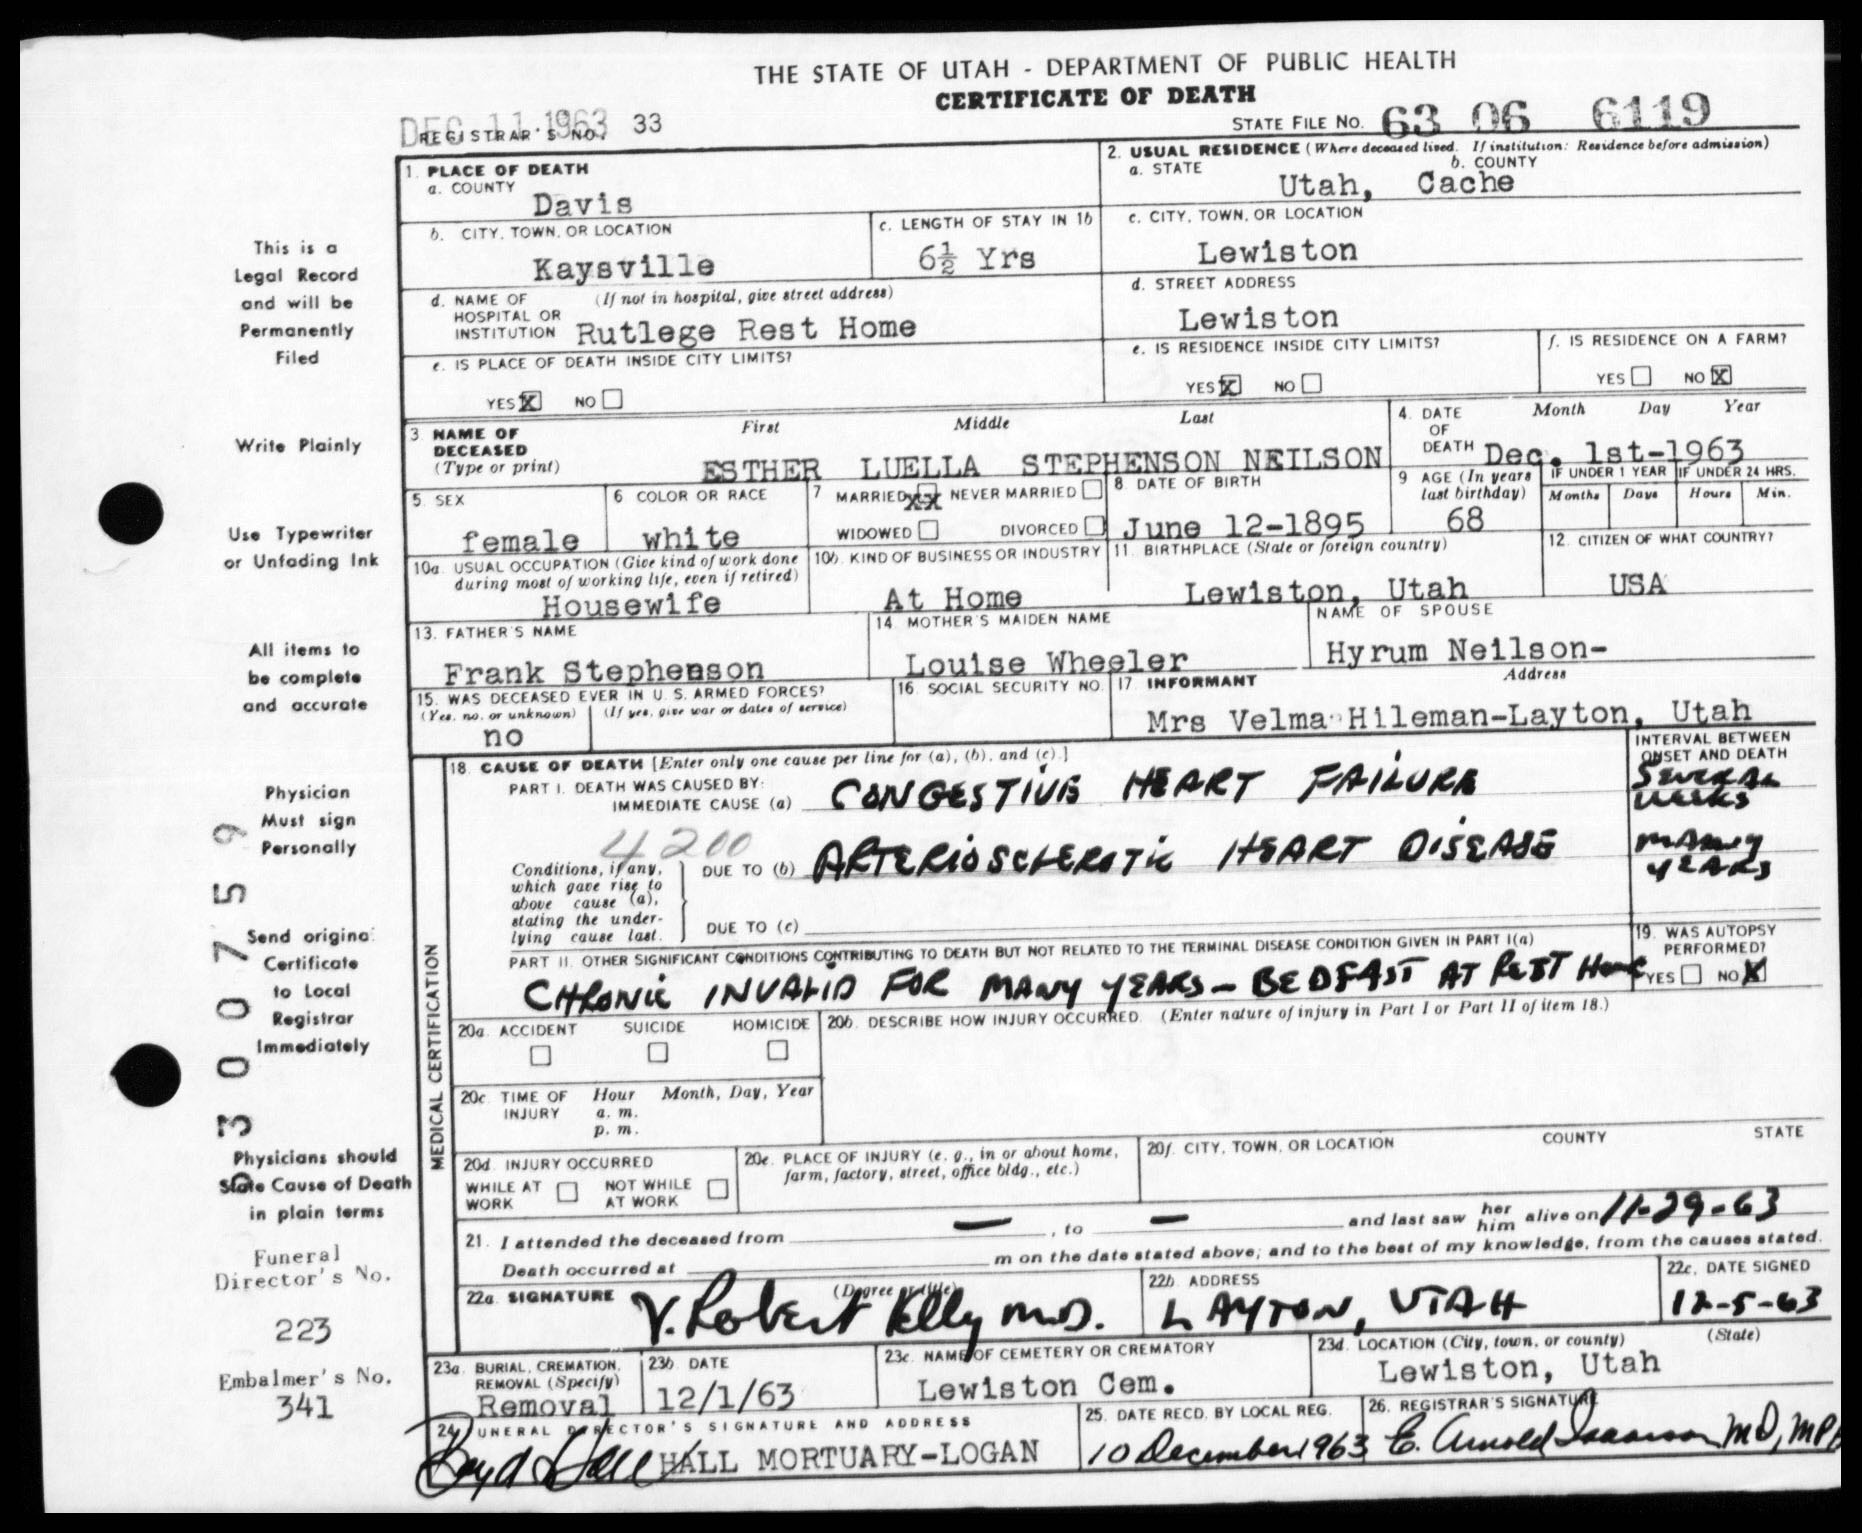 THE STATE OF UTAH - DEPARTMENT OF PUBLIC HEALTH
CERTIFICATE OF DEATH
DEC 11 1963
REGISTRAR'S NO. 33
STATE FILE NO. 63 06 6119
1. PLACE OF DEATH
a. COUNTY
Davis
2. USUAL RESIDENCE (Where deceased lived. If institution: Residence before admission)
a. STATE b. COUNTY
Utah, Cache
b. CITY, TOWN, OR LOCATION
Kaysville
c. LENGTH OF STAY IN 1b
6½ Yrs
c. CITY, TOWN, OR LOCATION
Lewiston
d. NAME OF HOSPITAL OR INSTITUTION (If not in hospital, give street address)
Rutlege Rest Home
d. STREET ADDRESS
Lewiston
e. IS PLACE OF DEATH INSIDE CITY LIMITS?
YES X NO
e. IS RESIDENCE INSIDE CITY LIMITS?
YES X NO
f. IS RESIDENCE ON A FARM?
YES NO X
3. NAME OF DECEASED (Type or print)
First Middle Last
ESTHER LUELLA STEPHENSON NEILSON
4. DATE OF DEATH
Month Day Year
Dec. 1st-1963
5. SEX
female
6 COLOR OR RACE
white
7 MARRIED XX NEVER MARRIED
WIDOWED DIVORCED
8. DATE OF BIRTH
June 12-1895
9 AGE (In years last birthday)
68
IF UNDER 1 YEAR
Months Days
IF UNDER 24 HRS.
Hours Min.
10a. USUAL OCCUPATION (Give kind of work done during most of working life, even if retired)
Housewife
10b. KIND OF BUSINESS OR INDUSTRY
At Home
11. BIRTHPLACE (State or foreign country)
Lewiston, Utah
12. CITIZEN OF WHAT COUNTRY?
USA
13. FATHER'S NAME
Frank Stephenson
14. MOTHER'S MAIDEN NAME
Louise Wheeler
NAME OF SPOUSE
Hyrum Neilson-
15. WAS DECEASED EVER IN U. S. ARMED FORCES?
(Yes, no, or unknown) (If yes, give war or dates of service)
no
16. SOCIAL SECURITY NO.
17. INFORMANT Address
Mrs Velma Hileman-Layton, Utah
MEDICAL CERTIFICATION
18. CAUSE OF DEATH [Enter only one cause per line for (a), (b), and (c).]
PART I. DEATH WAS CAUSED BY:
IMMEDIATE CAUSE (a) CONGESTIVE HEART FAILURE
INTERVAL BETWEEN ONSET AND DEATH
SEVERAL WEEKS
4200
Conditions, if any, which gave rise to above cause (a), stating the underlying cause last.
DUE TO (b) ARTERIOSCLEROTIC HEART DISEASE
MANY YEARS
DUE TO (c)
PART II. OTHER SIGNIFICANT CONDITIONS CONTRIBUTING TO DEATH BUT NOT RELATED TO THE TERMINAL DISEASE CONDITION GIVEN IN PART I(a)
CHRONIC INVALID FOR MANY YEARS - BEDFAST AT REST HOME
19. WAS AUTOPSY PERFORMED?
YES NO X
20a. ACCIDENT SUICIDE HOMICIDE
20b. DESCRIBE HOW INJURY OCCURRED. (Enter nature of injury in Part I or Part II of item 18.)
20c. TIME OF INJURY Hour Month, Day, Year
a. m.
p. m.
20d. INJURY OCCURRED
WHILE AT WORK NOT WHILE AT WORK
20e. PLACE OF INJURY (e. g., in or about home, farm, factory, street, office bldg., etc.)
20f. CITY, TOWN, OR LOCATION COUNTY STATE
21. I attended the deceased from — , to — and last saw her him alive on 11-29-63
Death occurred at m on the date stated above; and to the best of my knowledge, from the causes stated.
22a. SIGNATURE (Degree or title)
V. Robert Kelly M.D.
22b. ADDRESS
LAYTON, UTAH
22c. DATE SIGNED
12-5-63
23a. BURIAL, CREMATION, REMOVAL (Specify)
Removal
23b. DATE
12/1/63
23c. NAME OF CEMETERY OR CREMATORY
Lewiston Cem.
23d. LOCATION (City, town, or county) (State)
Lewiston, Utah
24. FUNERAL DIRECTOR'S SIGNATURE AND ADDRESS
Boyd Hall HALL MORTUARY-LOGAN
25. DATE RECD. BY LOCAL REG.
10 December 1963
26. REGISTRAR'S SIGNATURE
E. Arnold Isaacson MD, MPH
This is a
Legal Record
and will be
Permanently
Filed
Write Plainly
Use Typewriter
or Unfading Ink
All items to
be complete
and accurate
Physician
Must sign
Personally
Send original
Certificate
to Local
Registrar
Immediately
Physicians should
State Cause of Death
in plain terms
Funeral
Director's No.
223
Embalmer's No.
341